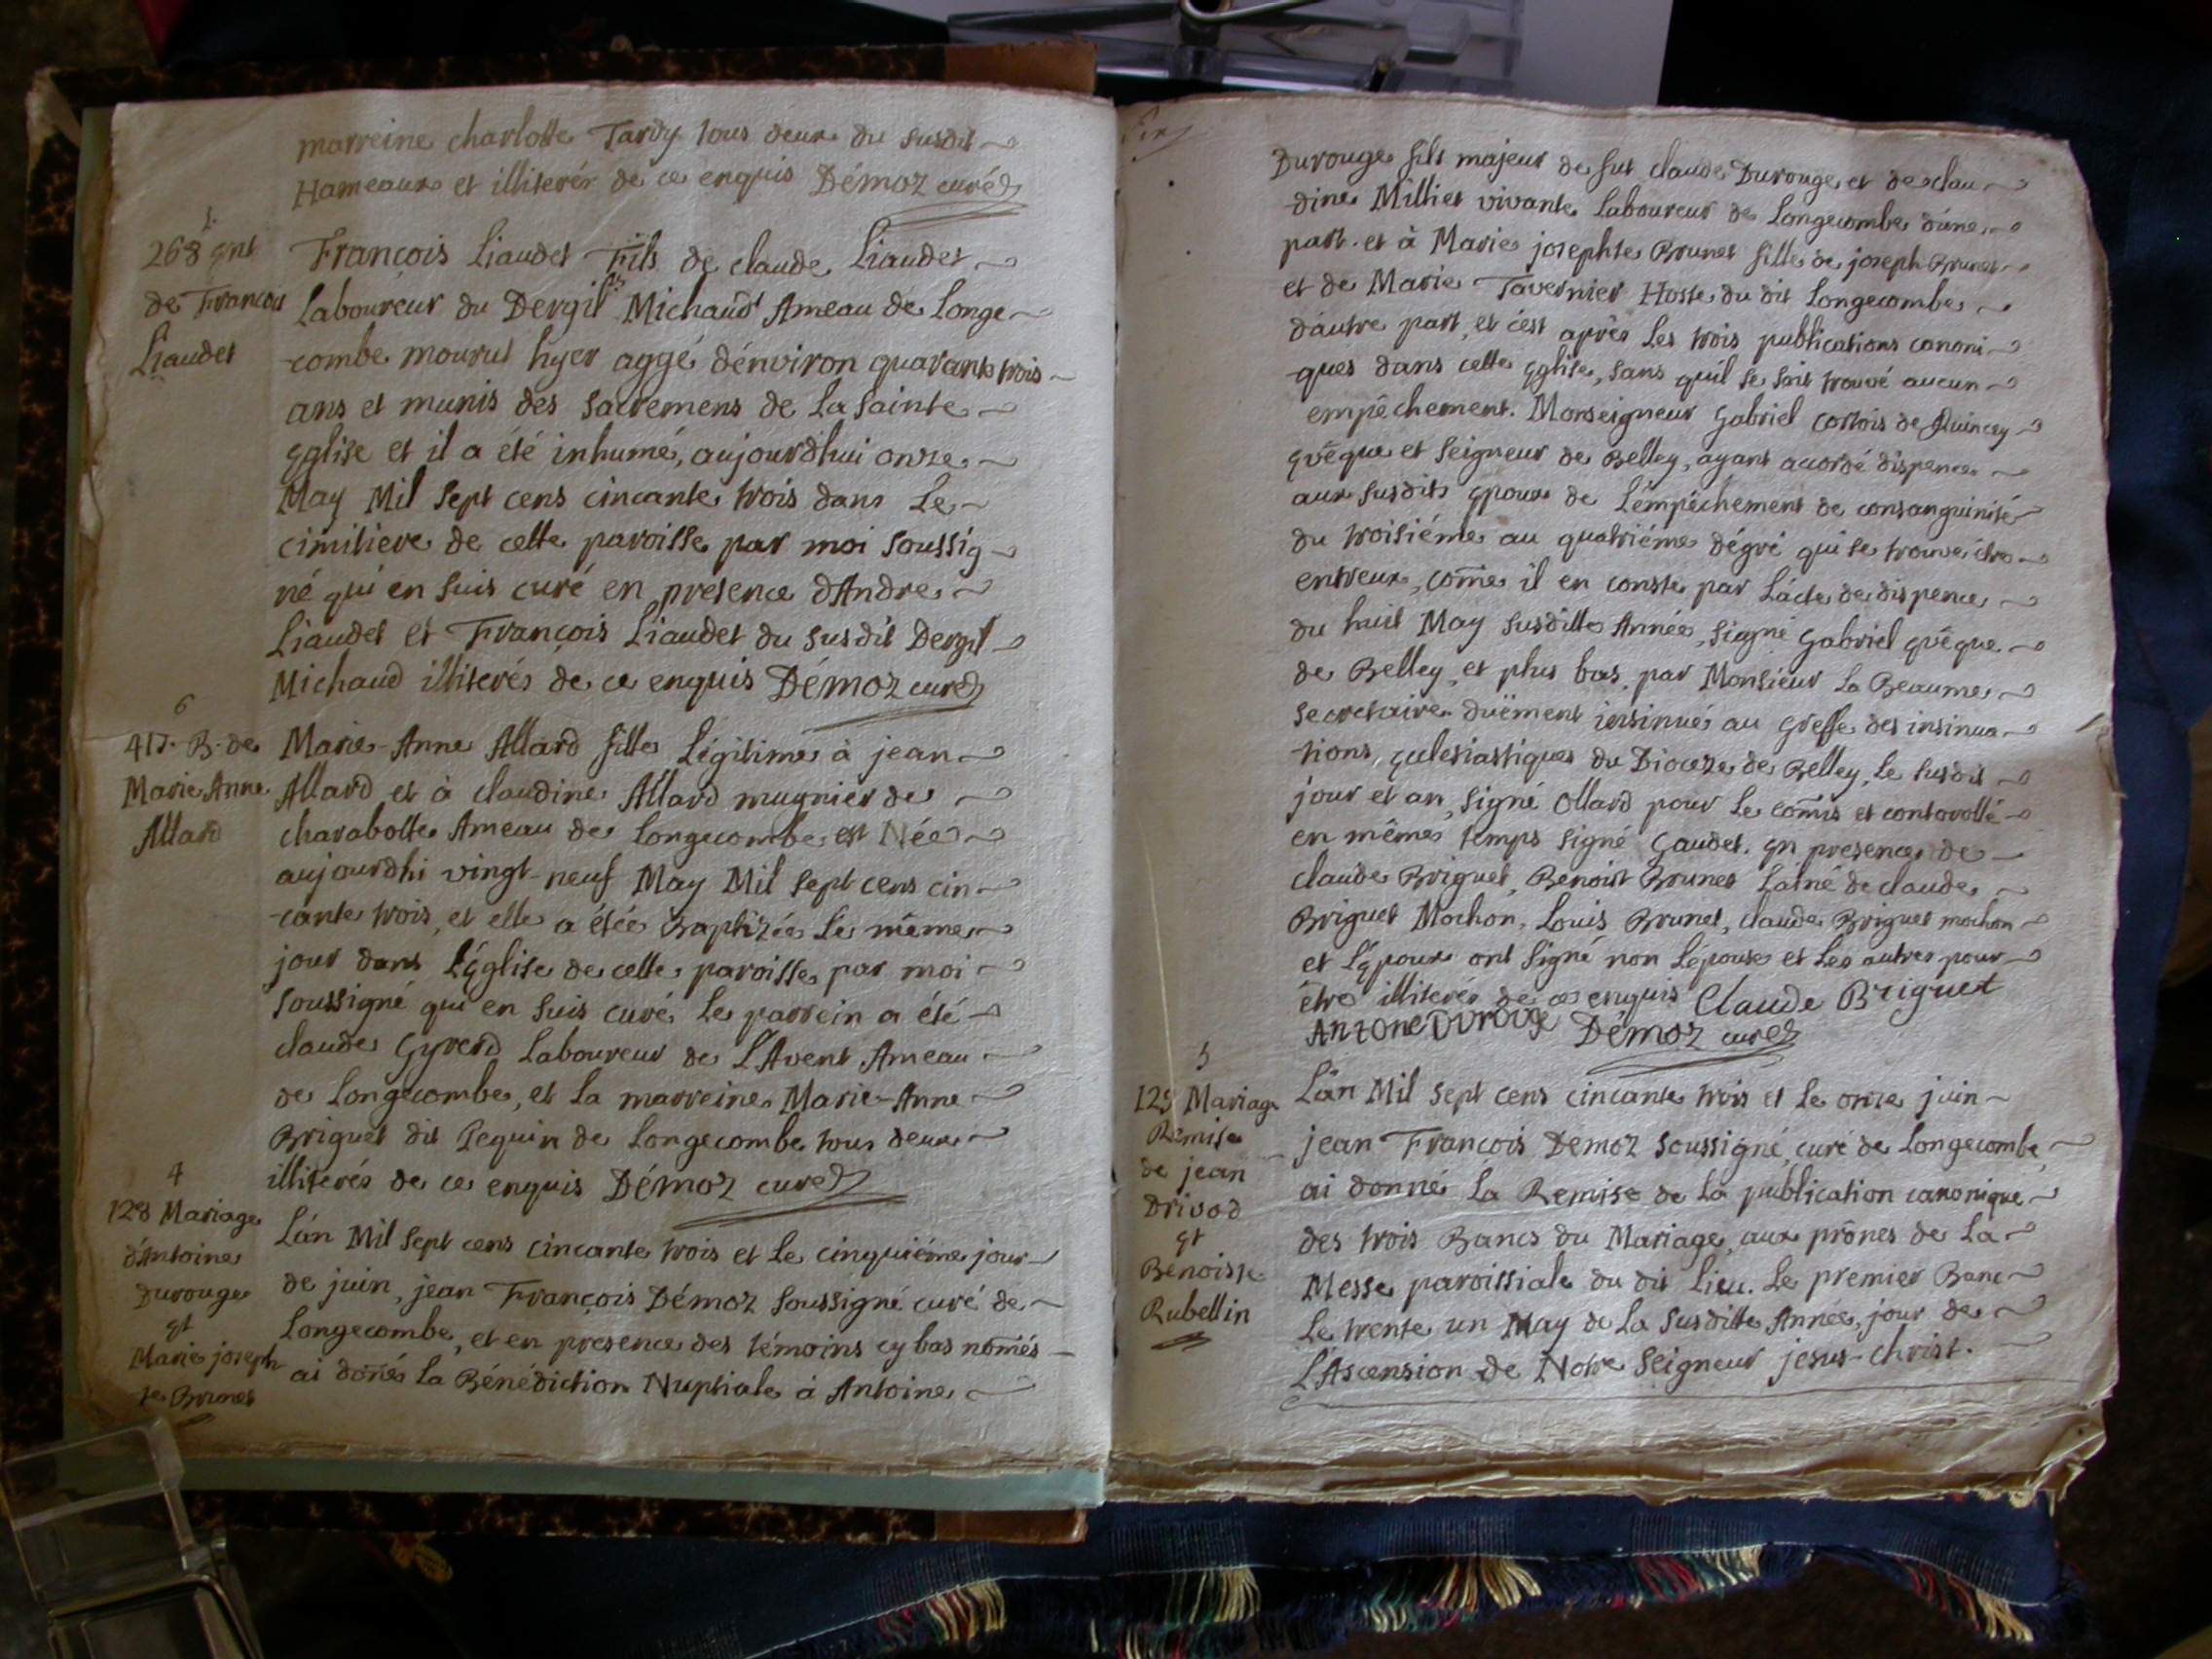 marreine charlotte Tardy tous deux du susdit
Hameaux et illiterés de ce enquis Démoz curé
5.
268 Ent
de Francois
Liaudet
François Liaudet Fils de claude Liaudet
Laboureur du Dergit Michaud Ameau de Longe
-combe mourut hyer aggé d'environ quarante trois
ans et munis des sacremens de La Sainte
Eglise et il a été inhumé, aujourdhui onze
May Mil Sept cens cincante trois dans Le
cimitiere de cette paroisse par moi soussig
né qui en suis curé en presence d'Andre
Liaudet et François Liaudet du susdit Dergit
Michaud illiterés de ce enquis Démoz curé
6
417. B. de
Marie Anne
Allard
Marie-Anne Allard fille Légitime à jean
Allard et à claudine Allard mugnier de
charabotte Ameau de Longecombe est Née
aujourdhi vingt-neuf May Mil Sept cens cin
-cante trois, et elle a étée Baptizée Le même
jour dans L'Eglise de cette paroisse par moi
soussigné qui en suis curé Le parrein a été
claude Gyrerd Laboureur de L'Avent Ameau
de Longecombe, et La marreine Marie-Anne
Briguet dit Pequin de Longecombe tous deux
illiterés de ce enquis Démoz curé
4
128 Mariage
d'Antoine
Durouge
Et
Marie joseph
te Brunet
L'an Mil Sept cens cincante trois et Le cinquiéme jour
de juin, jean François Démoz soussigné curé de
Longecombe, et en presence des témoins cy bas nom̃és
ai doñé La Bénédiction Nuptiale à Antoine
Durouge fils majeur de fut claude Durouge, et de clau
-dine Milliet vivante Laboureur de Longecombe d'une
part. et à Marie josephte Brunet fille de joseph Brunet
et de Marie Tavernier Hoste du dit Longecombe
d'autre part, et c'est après Les trois publications canoni
ques dans cette Eglise, sans quil se soit trouvé aucun
empêchement. Monseigneur Gabriel cortois de Quincey
Evêque et Seigneur de Belley, ayant accordé dispence
aux susdits Epoux de L'empêchement de consanguinité
du troisiéme au quatriéme dégré qui se trouve être
entreux, com̃e il en conste par L'acte de dispence
du huit May susditte Année, signé Gabriel Evêque
de Belley, et plus bas, par Monsieur La Beaume
secretaire duëment insinué au Greffe des insinua
-tions, Eclesiastiques du Dioceze de Belley, Le susdit
jour et an, signé Ollard pour Le com̃is et controllé
en même temps signé Gaudet. En presence de
claude Briguet, Benoist Brunet Lainé de claude
Briguet Mochon, Louis Brunet, claude Briguet mochon
et L'Epoux ont signé non L'épouse et Les autres pour
être illiterés de ce enquis Claude Briguet
AnTone Durouge Démoz curé
5
129 Mariage
Remise
de jean
Drivod
Et
Benoiste
Rubellin
L'an Mil Sept cens cincante trois et Le onze juin
jean François Démoz soussigné, curé de Longecombe
ai donné La Remise de La publication canonique
des trois Bancs du Mariage, aux prônes de La
Messe paroissiale du dit Lieu. Le premier Banc
Le trente un May de La susditte Année, jour de
L'Ascension de Notre Seigneur jesus-christ.